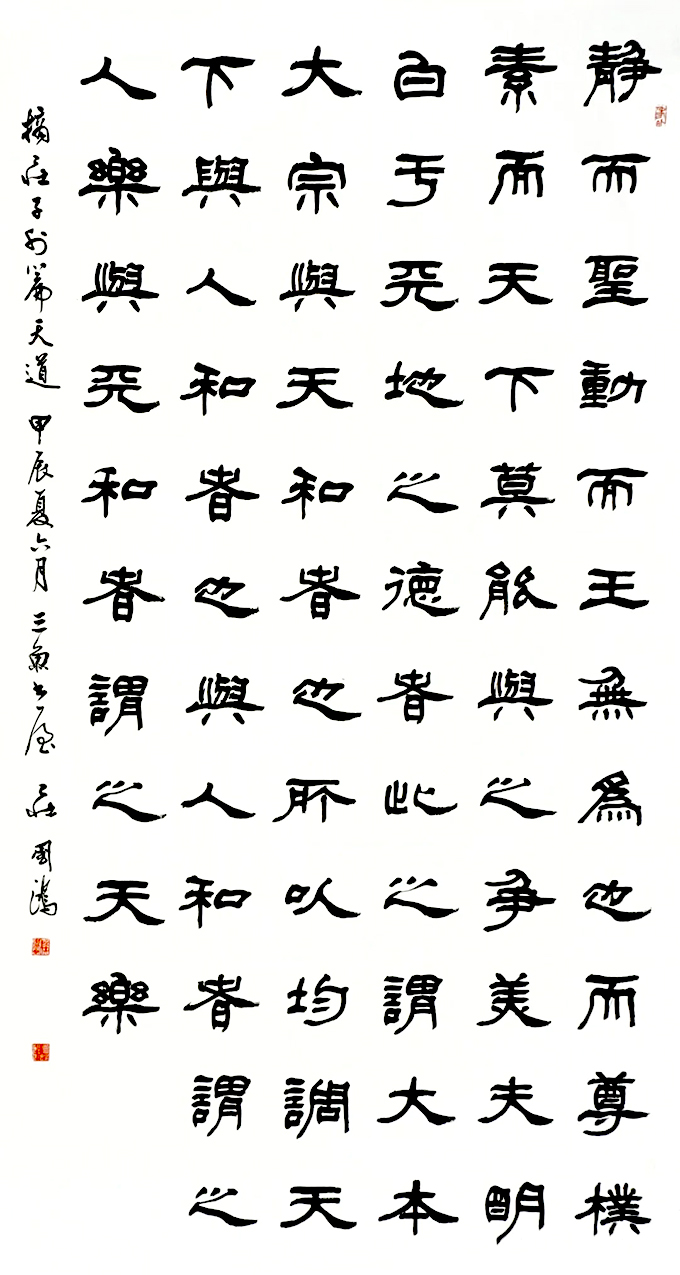 靜而聖動而王無爲也而尊樸
素而天下莫能與之爭美夫明
白于天地之德者此之謂大本
大宗與天和者也所以均調天
下與人和者也與人和者謂之
人樂與天和者謂之天樂
摘莊子外篇天道 甲辰夏六月 三魚書屋 莊國